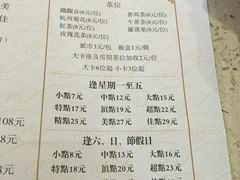 美
佳
茶位
鐵觀音(6元/位) 普洱茶(6元/位)
杭州菊花(8元/位) 牛蒡茶(8元/位)
紅茶(8元/位) 羅漢果(8元/位)
玫瑰花茶(8元/位)
紙巾3元/包 飯盒1元/個
大卡座及房間茶位加收2元/位
大卡6位起 小卡3位起
逢星期一至五
小點7元 中點12元 大點15元
特點17元 頂點19元 超點22元
精點25元 美點27元 佳點29元
逢六、日、節假日
小點8元 中點13元 大點16元
特點18元 頂點20元 超點23元